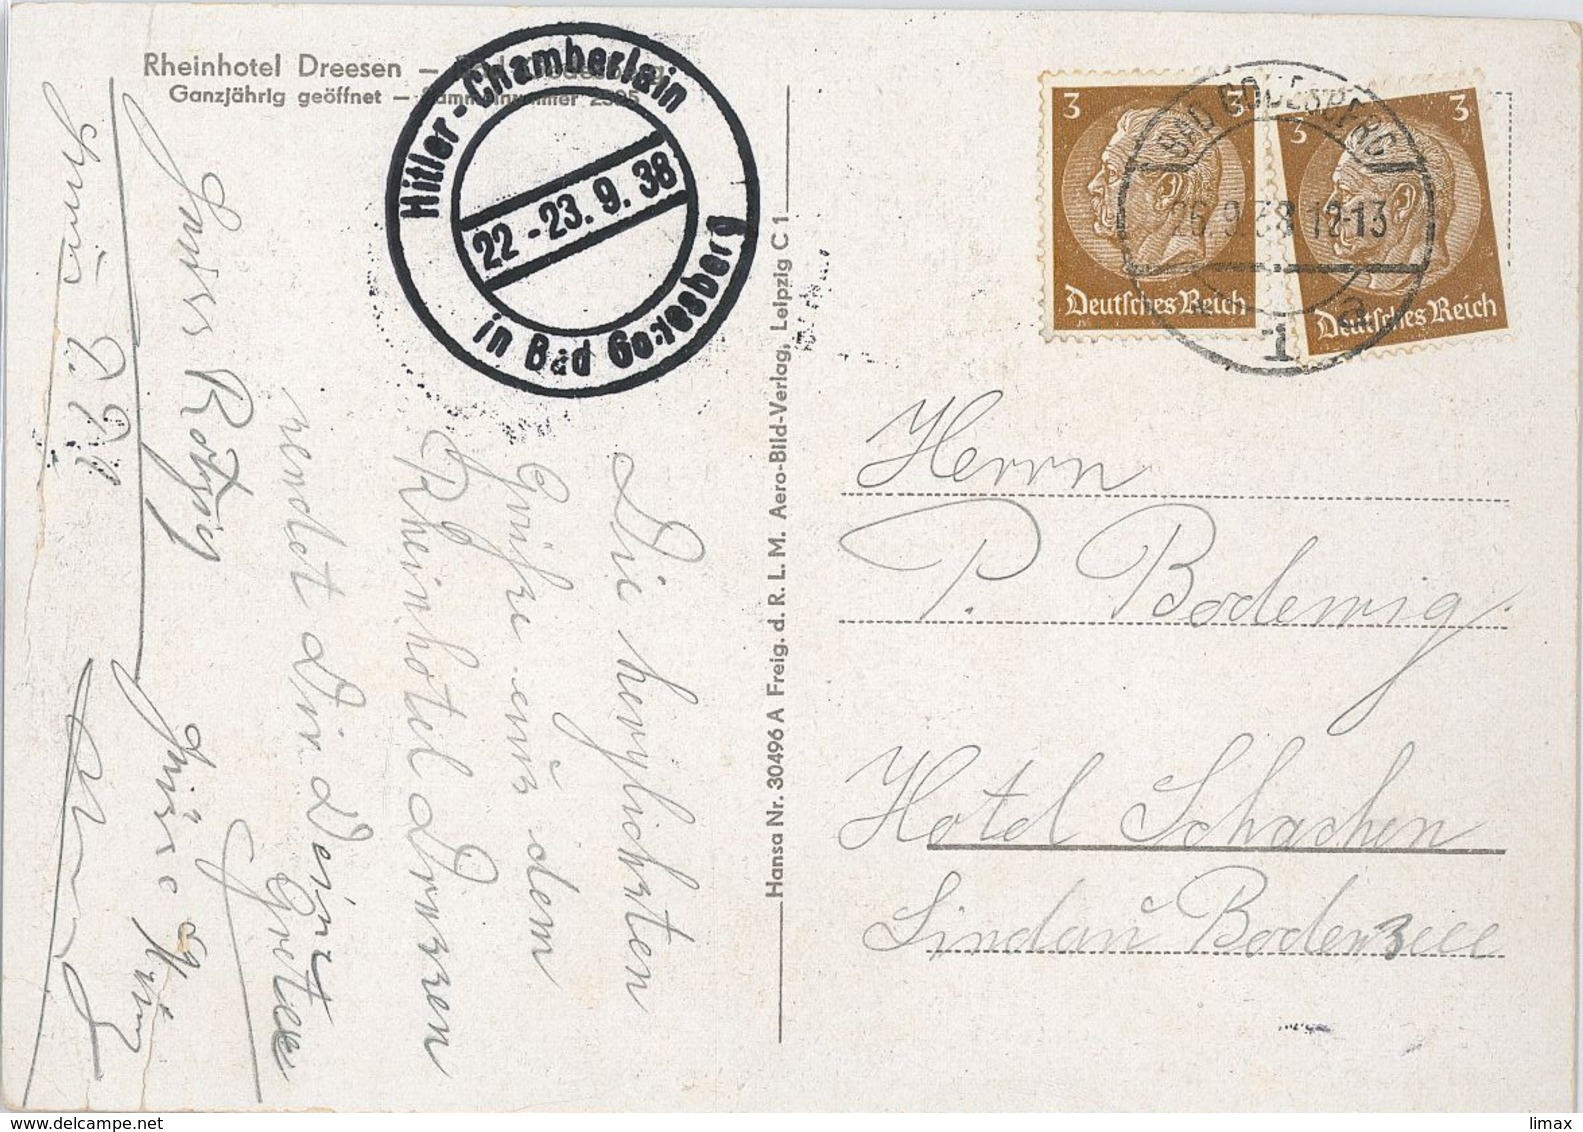 Rheinhotel Dreesen –
Ganzjährig geöffnet – Sammelnummer 2505
Hitler-Chamberlain
22-23.9.38
in Bad Godesberg
3 3
Deutsches Reich
3 3
Deutsches Reich
BAD GODESBERG
26.9.38 12-13
1
Hansa Nr. 30496 A Freig. d. R. L. M. Aero-Bild-Verlag, Leipzig C 1
Die herzlichsten
Grüße aus dem
Rheinhotel Dreesen
sendet Dir Deine
Grete
Herrn
P. Bodewig
Hotel Schachen
Lindau Bodensee
www.delcampe.net
limax